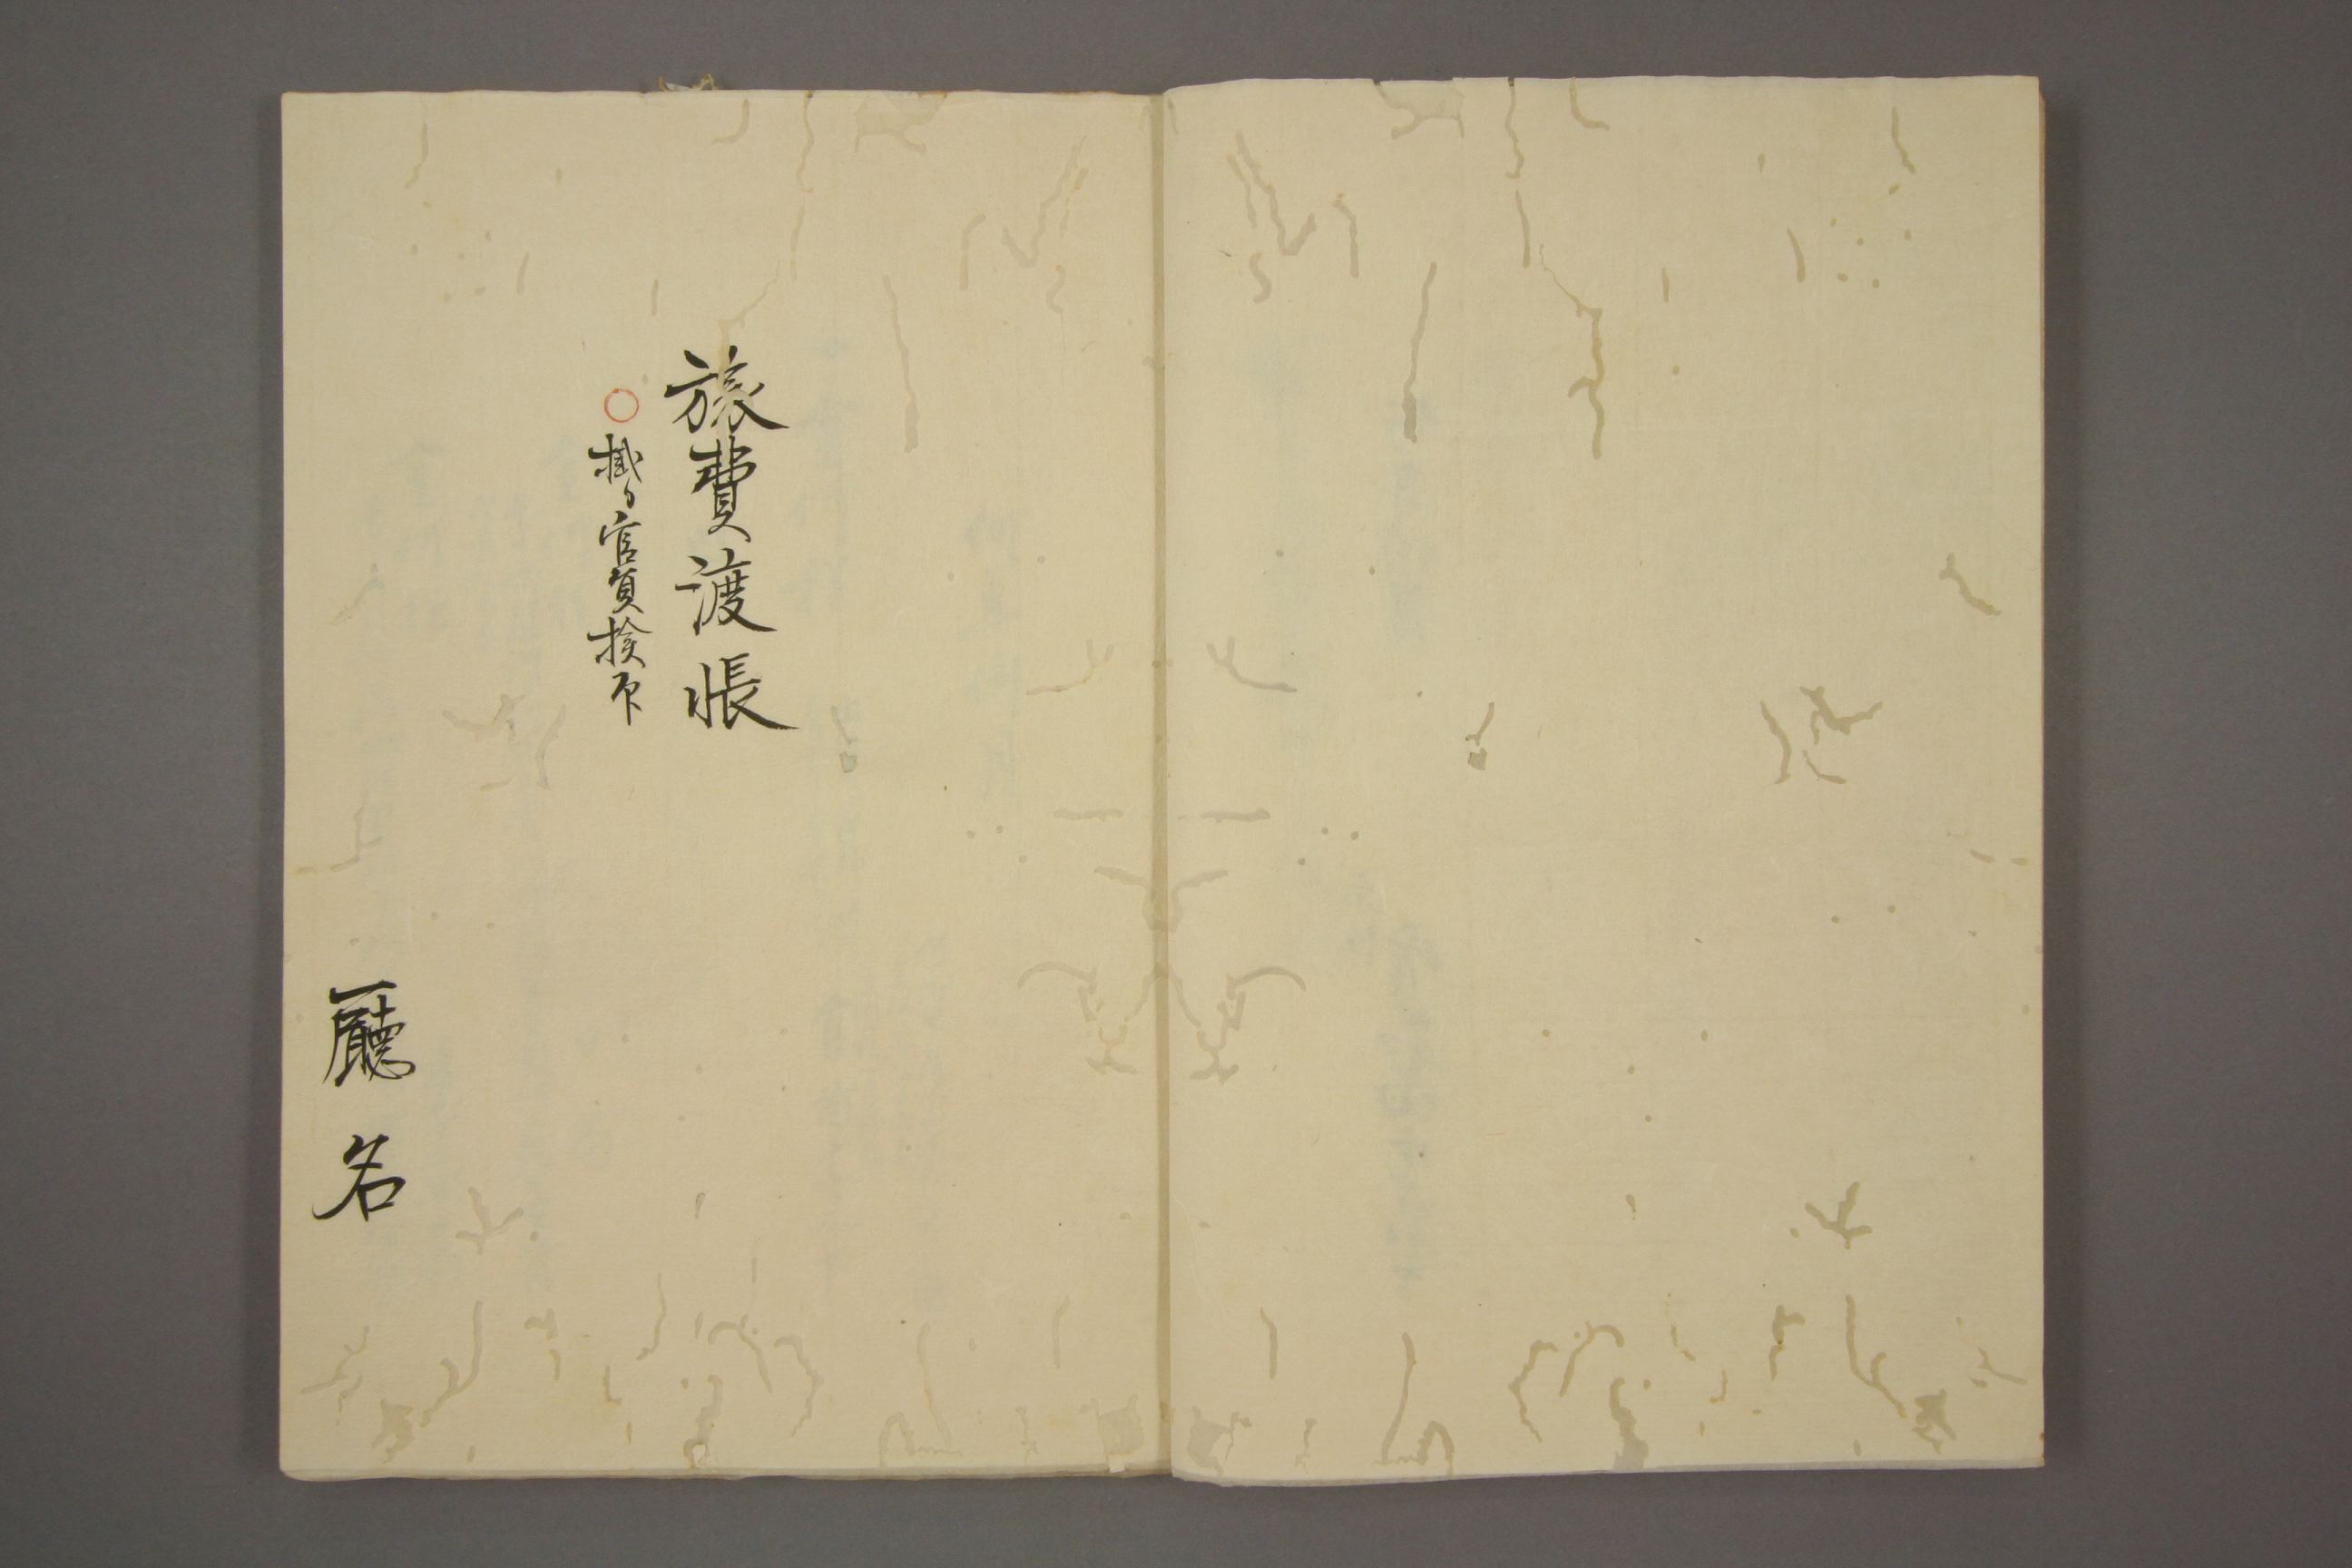 旅費渡帳
○掛り官員検印
廳名